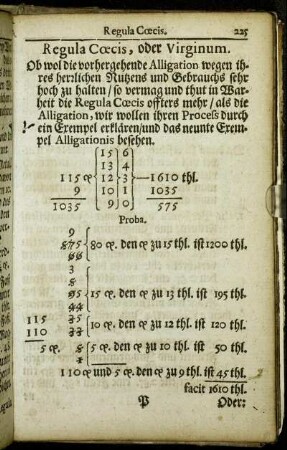 Regula Cœcis. 225
Regula Cœcis, oder Virginum.
Ob wol die vorhergehende Alligation wegen ih⸗
res herrlichen Nutzens und Gebrauchs sehr
hoch zu halten / so vermag und thut in War⸗
heit die Regula Cœcis offters mehr / als die
Alligation, wir wollen ihren Process durch
ein Exempel erklären/und das neunte Exem⸗
pel Alligationis besehen.
15 6
13 4
115 ℔ 12 3 —1610 thl.
9 10 1 1035
1035 9 0 575
Proba.
9
875 80 ℔. den ℔ zu 15 thl. ist 1200 thl.
66
3
8
95 15 ℔. den ℔ zu 13 thl. ist 195 thl.
44
115 35 10 ℔. den ℔ zu 12 thl. ist 120 thl.
110 33
5 ℔. 8 5 ℔. den ℔ zu 10 thl. ist 50 thl.
110 ℔ und 5 ℔. den ℔ zu 9 thl. ist 45 thl.
facit 1610 thl.
P Oder: